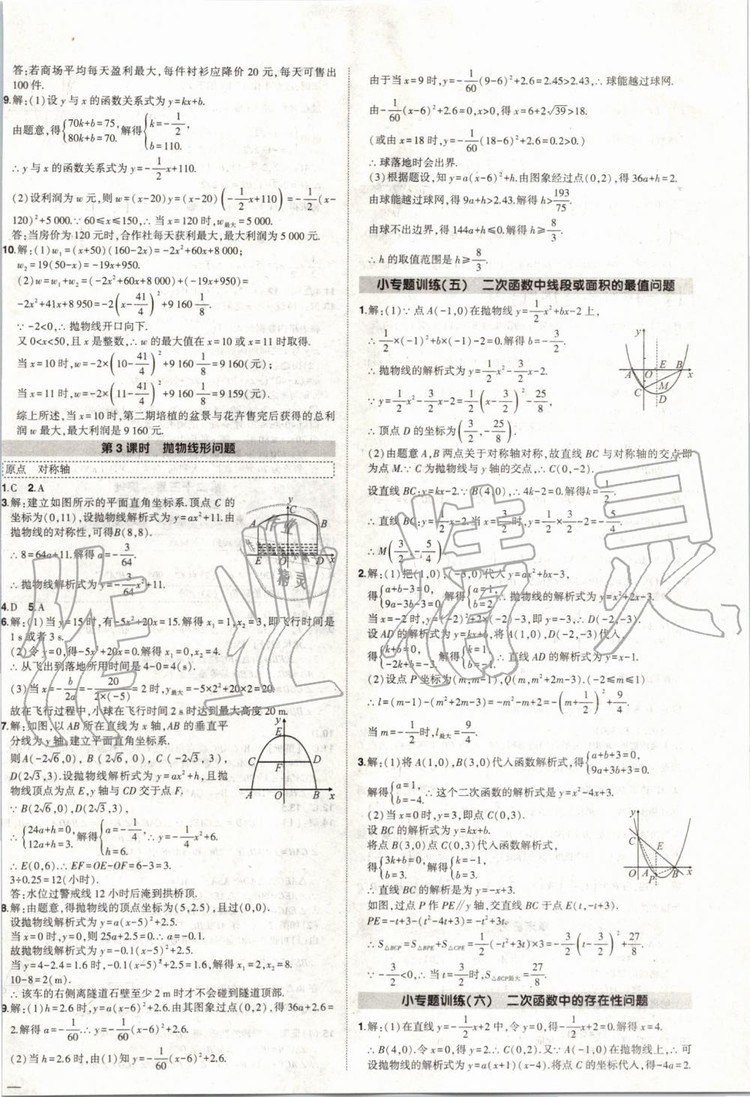 答:若商场平均每天盈利最大,每件衬衫应降价 20 元,每天可售出
100 件.
9.解:(1)设 y 与 x 的函数关系式为 y=kx+b.
由题意,得{70k+b=75, 80k+b=70. 解得{k=-1/2, b=110.
∴ y 与 x 的函数关系式为 y=-1/2x+110.
(2)设利润为 w 元,则 w=(x-20)y=(x-20)(-1/2x+110)=-1/2(x-
120)²+5 000.∵ 60≤x≤150,∴ 当 x=120 时,w最大=5 000.
答:当房价为 120 元时,合作社每天获利最大,最大利润为 5 000 元.
10.解:(1)w₁=(x+50)(160-2x)=-2x²+60x+8 000;
w₂=19(50-x)=-19x+950.
(2)w=w₁+w₂=(-2x²+60x+8 000)+(-19x+950)=
-2x²+41x+8 950=-2(x-41/4)²+9 160 1/8.
∵ -2<0,∴ 抛物线开口向下.
又 0<x<50,且 x 是整数,∴ w 的最大值在 x=10 或 x=11 时取得.
当 x=10 时,w=-2×(10-41/4)²+9 160 1/8=9 160(元);
当 x=11 时,w=-2×(11-41/4)²+9 160 1/8=9 159(元).
综上所述,当 x=10 时,第二期培植的盆景与花卉售完后获得的总利
润 w 最大,最大利润是 9 160 元.
第 3 课时 抛物线形问题
原点 对称轴
1.C 2.A
3.解:建立如图所示的平面直角坐标系.顶点 C 的
坐标为(0,11),设抛物线解析式为 y=ax²+11.由
抛物线的对称性,可得B(8,8).
∴ 8=64a+11.解得a=-3/64.
∴ 抛物线解析式为 y=-3/64x²+11.
y C A B E O D x
4.D 5.A
6.解:(1)当 y=15 时,有-5x²+20x=15.解得 x₁=1,x₂=3,即飞行时间是
1 s 或者 3 s.
(2)令 y=0,得-5x²+20x=0.解得 x₁=0,x₂=4.
∴ 从飞出到落地所用时间是 4-0=4(s).
(3)当 x=-b/2a=-20/2×(-5)=2 时,y最大=-5×2²+20×2=20.
故在飞行过程中,小球在飞行时间 2 s时达到最大高度 20 m.
7.解:如图,以 AB 所在直线为 x 轴,AB 的垂直平
分线为 y 轴,建立平面直角坐标系.
则A(-2√6,0),B(2√6,0),C(-2√3,3),
D(2√3,3).设抛物线解析式为 y=ax²+h,且抛
物线顶点为点 E,y轴与 CD 交于点 F.
∵ B(2√6,0),D(2√3,3),
∴ {24a+h=0, 12a+h=3. 解得{a=-1/4, h=6. ∴ y=-1/4x²+6.
∴ E(0,6).∴ EF=OE-OF=6-3=3.
3÷0.25=12(小时).
答:水位过警戒线 12 小时后淹到拱桥顶.
y E C F D A O B x
8.解:由题意,得抛物线的顶点坐标为(5,2.5),且过(0,0).
设抛物线解析式为 y=a(x-5)²+2.5.
当 x=0 时,y=0,则 25a+2.5=0.∴ a=-0.1.
故抛物线解析式为 y=-0.1(x-5)²+2.5.
当 y=4-2.4=1.6 时,-0.1(x-5)²+2.5=1.6.∴ x₁=8,x₂=2.
10-8=2(m).
∴ 该车的右侧离隧道石壁至少 2 m 时才不会碰到隧道顶部.
9.解:(1)当 h=2.6 时,y=a(x-6)²+2.6.由其图象过点(0,2),得 36a+2.6
=2.解得 a=-1/60.∴ y=-1/60(x-6)²+2.6.
(2)当 h=2.6 时,由(1)知 y=-1/60(x-6)²+2.6.
由于当 x=9 时,y=-1/60(9-6)²+2.6=2.45>2.43,∴ 球能越过球网.
由-1/60(x-6)²+2.6=0,x>0,得 x=6+2√39>18.
(或由 x=18 时,y=-1/60(18-6)²+2.6=0.2>0.)
∴ 球落地时会出界.
(3)根据题设,知 y=a(x-6)²+h.由图象经过点(0,2),得 36a+h=2.
由球能越过球网,得 9a+h>2.43.解得 h>193/75.
由球不出边界,得 144a+h≤0.解得 h≥8/3.
∴ h 的取值范围是 h≥8/3.
小专题训练(五) 二次函数中线段或面积的最值问题
1.解:(1)∵ 点 A(-1,0)在抛物线 y=1/2x²+bx-2 上,
∴ 1/2×(-1)²+b×(-1)-2=0.解得b=-3/2.
∴ 抛物线的解析式为 y=1/2x²-3/2x-2.
∵ y=1/2x²-3/2x-2=1/2(x-3/2)²-25/8,
∴ 顶点 D 的坐标为(3/2,-25/8).
y A O B x C M D
(2)由题意,知点 A,B 关于对称轴对称,故直线 BC 与对称轴的交点即
为点 M.∵ C 为抛物线与 y轴的交点,∴ C(0,-2).
设直线BC:y=kx-2.∵ B(4,0),∴ 0=4k-2.解得k=1/2.
∴ 直线 BC:y=1/2x-2.当 x=3/2时,y=1/2×3/2-2=-5/4.
∴ M(3/2,-5/4).
2.解:(1)把(1,0),(-3,0)代入 y=ax²+bx-3,
得{a+b-3=0, 9a-3b-3=0. 解得{a=1, b=2. ∴ 抛物线的解析式为 y=x²+2x-3.
当 x=-2 时,y=(-2)²+2×(-2)-3,即 y=-3.∴ D(-2,-3).
设 AD 的解析式为 y=kx+h,将 A(1,0),D(-2,-3)代入,
得{k+h=0, -2k+h=-3. 解得{k=1, h=-1. ∴ 直线 AD 的解析式为 y=x-1.
(2)设点 P 坐标为(m,m-1),则Q(m,m²+2m-3).(-2≤m≤1)
∴ l=(m-1)-(m²+2m-3)=-m²-m+2=-(m+1/2)²+9/4.
当 m=-1/2时,l最大=9/4.
3.解:(1)将 A(1,0),B(3,0)代入函数解析式,得{a+b+3=0, 9a+3b+3=0.
解得{a=1, b=-4. ∴ 这个二次函数的解析式是 y=x²-4x+3.
(2)当 x=0 时,y=3,即点 C(0,3).
设 BC 的解析式为 y=kx+b.
将点 B(3,0),点 C(0,3)代入函数解析式,
得{3k+b=0, b=3. 解得{k=-1, b=3.
∴ 直线 BC 的解析是为 y=-x+3.
过点 P 作 PE∥y 轴,交直线 BC 于点 E(t,-t+3).
PE=-t+3-(t²-4t+3)=-t²+3t.
∴ S△BCP=S△BPE+S△CPE=1/2(-t²+3t)×3=-3/2(t-3/2)²+27/8.
∵ -3/2<0,∴ 当 t=3/2时,S△BCP最大=27/8.
小专题训练(六) 二次函数中的存在性问题
1.解:(1)在直线 y=-1/2x+2 中,令 y=0,得-1/2x+2=0.解得 x=4.
∴ B(4,0).令 x=0,得 y=2.∴ C(0,2).又∵ A(-1,0)在抛物线上,∴ 可
设抛物线的解析式为 y=a(x+1)(x-4).将 C 的坐标代入,得-4a=2.